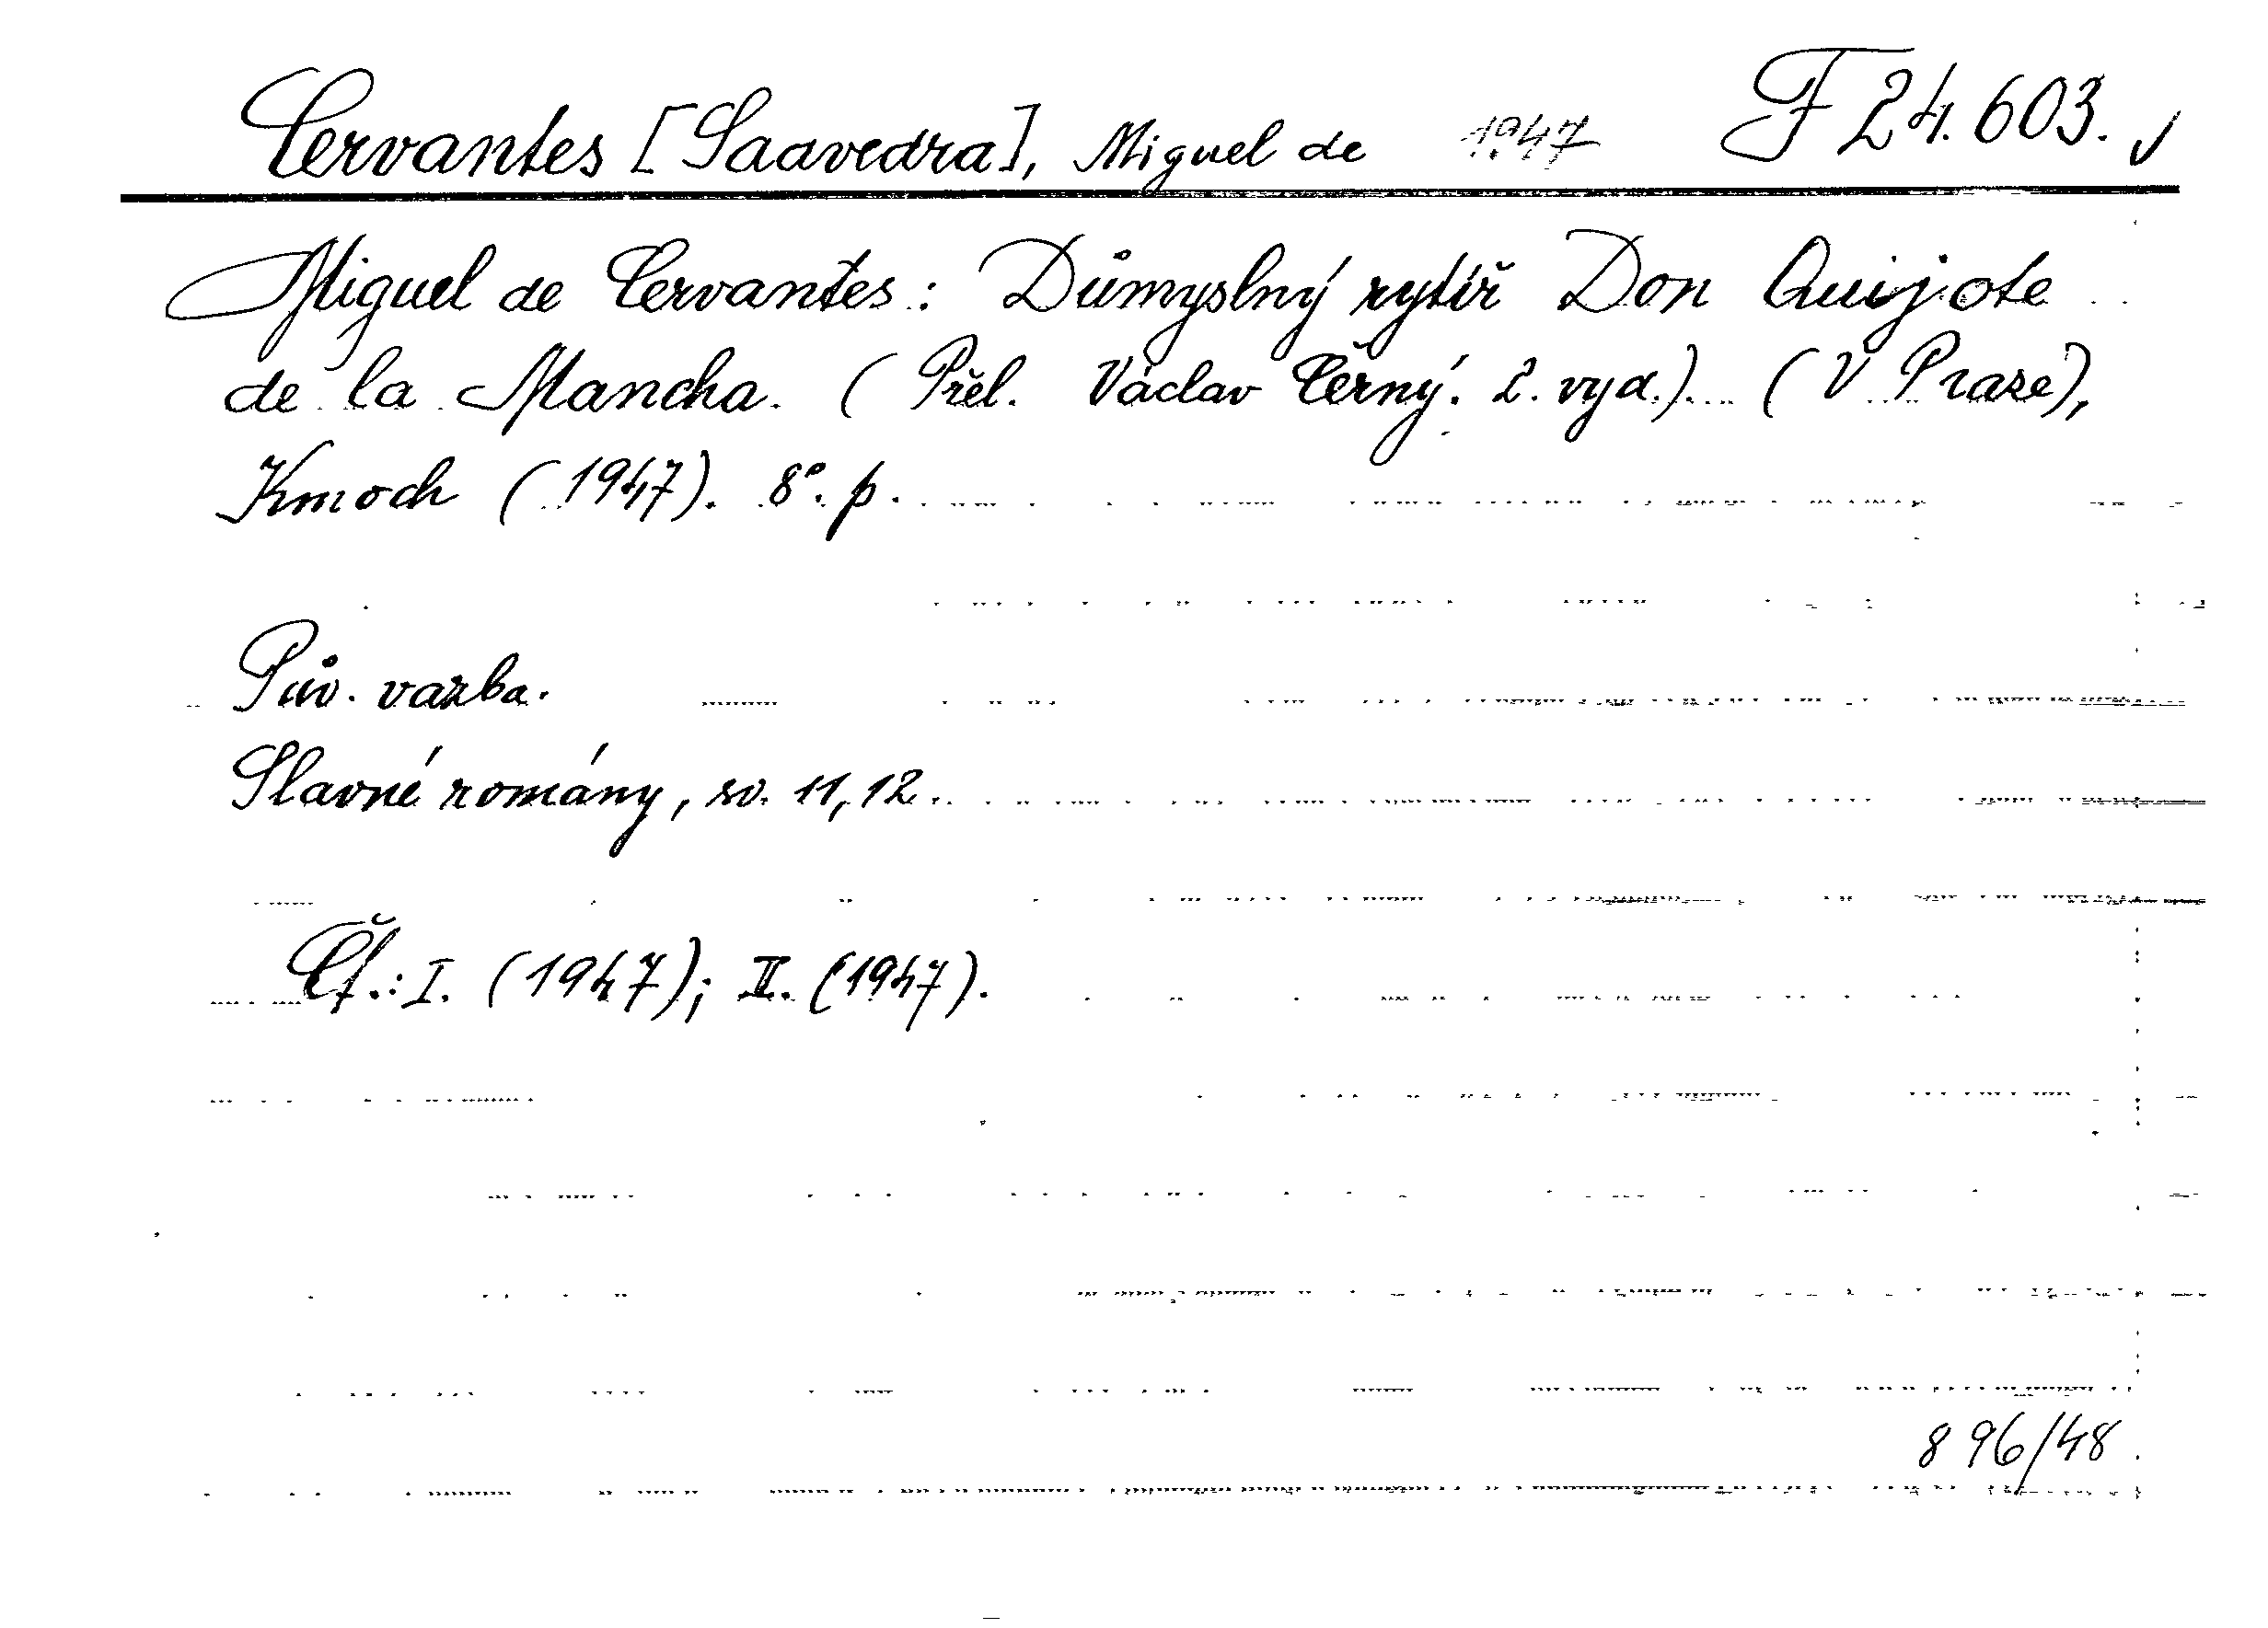 Cervantes [Saavedra], Miguel de 1947 F 24.603.
Miguel de Cervantes: Důmyslný rytíř Don Quijote
de la Mancha. (Přel. Václav Černý. 2. vyd.). (V Praze),
Kmoch (1947). 8°. p.
Pův. vazba.
Slavné romány, sv. 11, 12.
Čť.: I. (1947); II. (1947).
896/48